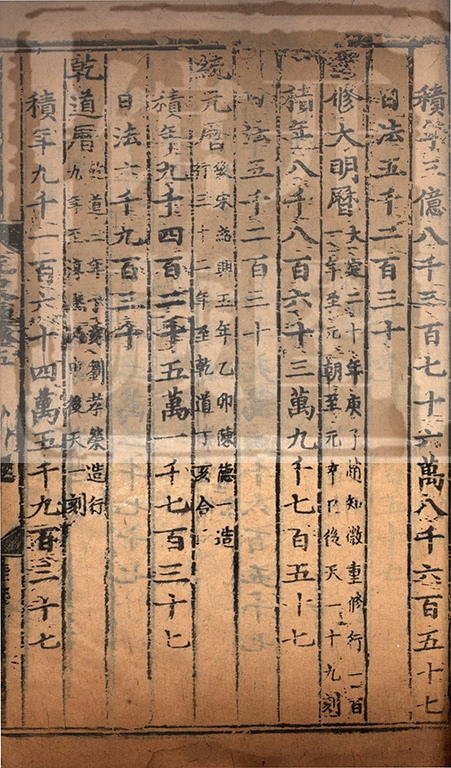 積年三億八千三百七十六萬八千六百五十七
日法五千二百三十
修大明曆 大定二十年庚子趙知微重修行一百
一年至元朝至元辛巳後天一十九刻
積年八千八百六十三萬九千七百五十七
日法五千二百三十
統元曆 紹興五年乙卯陳德一造
行三十二年至乾道丁亥合
積年九千四百二十五萬一千七百三十七
日法六千九百三十
乾道曆 乾道三年丁亥劉孝榮造行
九年至淳熙丙申後天一刻
積年九千一百六十四萬五千九百三十七